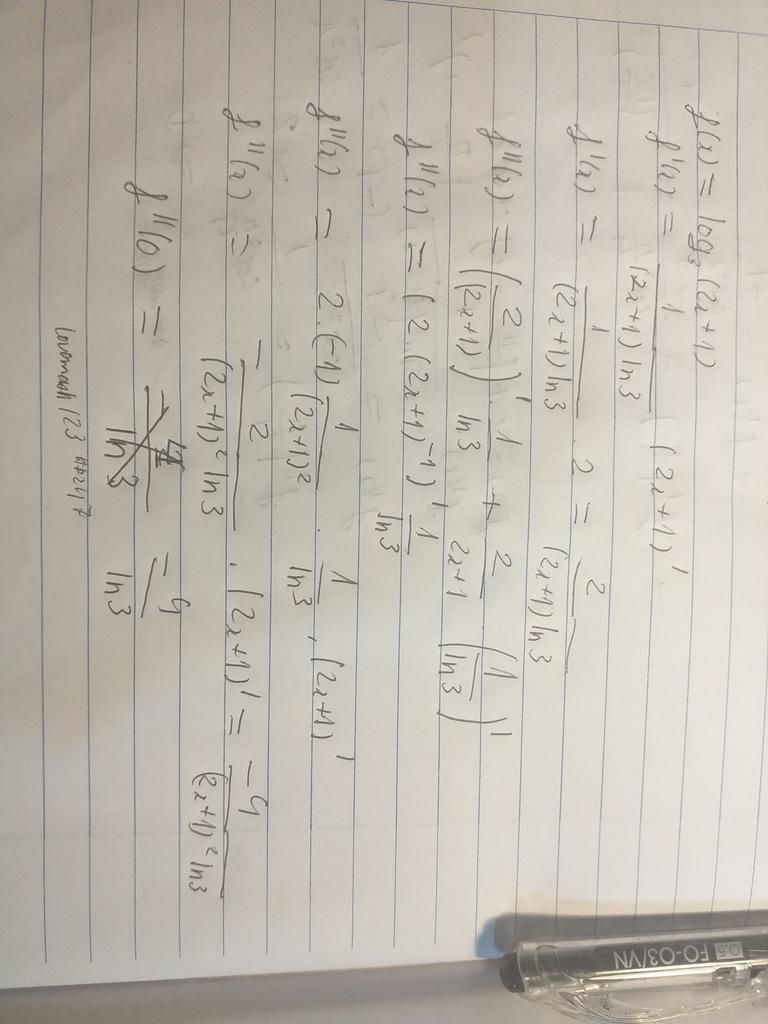 f(x) = log₃ (2x+1)
f'(x) = 1/((2x+1) ln3) (2x+1)'
f'(x) = 1/((2x+1) ln3) . 2 = 2/((2x+1) ln3)
f''(x) = (2/(2x+1))' . 1/ln3 + 2/(2x+1) . (1/ln3)'
f''(x) = (2.(2x+1)⁻¹)' 1/ln3
f''(x) = 2.(-1) 1/(2x+1)² . 1/ln3 . (2x+1)'
f''(x) = -2/((2x+1)² ln3) . (2x+1)' = -4/((2x+1)² ln3)
f''(0) = -4/ln3
FO-03/VN 0.5